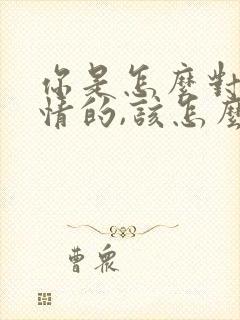 你是怎麼對
情的,該怎麼
曹眾